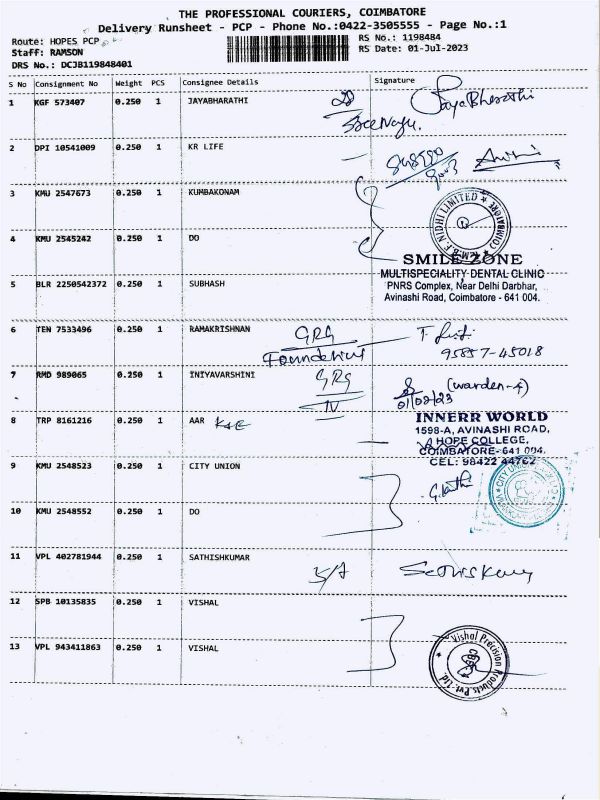 THE PROFESSIONAL COURIERS, COIMBATORE
Delivery Runsheet - PCP - Phone No.:0422-3505555 - Page No.:1
Route: HOPES PCP
RS No.: 1198484
Staff: RAMSON
RS Date: 01-Jul-2023
DRS No.: DCJB119848401
S No Consignment No Weight PCS Consignee Details Signature
1 KGF 573407 0.250 1 JAYABHARATHI JayaBharathi
2 DPI 10541009 0.250 1 KR LIFE
3 KMU 2547673 0.250 1 KUMBAKONAM
NIDHI LIMITED COIMBATORE
4 KMU 2545242 0.250 1 DO
SMILE ZONE
MULTISPECIALITY DENTAL CLINIC
5 BLR 2250542372 0.250 1 SUBHASH PNRS Complex, Near Delhi Darbhar,
Avinashi Road, Coimbatore - 641 004.
6 TEN 7533496 0.250 1 RAMAKRISHNAN GRG
95857-45018
7 RMD 989065 0.250 1 INIYAVARSHINI GRG (warden-4)
01/08/23
8 TRP 8161216 0.250 1 AAR INNERR WORLD
1598-A, AVINASHI ROAD,
HOPE COLLEGE,
COIMBATORE-641 004.
CEL: 98422 44762
9 KMU 2548523 0.250 1 CITY UNION
CITY UNION
10 KMU 2548552 0.250 1 DO
11 VPL 402781944 0.250 1 SATHISHKUMAR
12 SPB 10135835 0.250 1 VISHAL
13 VPL 943411863 0.250 1 VISHAL
Vishal Precision Products Pvt. Ltd.
CBE